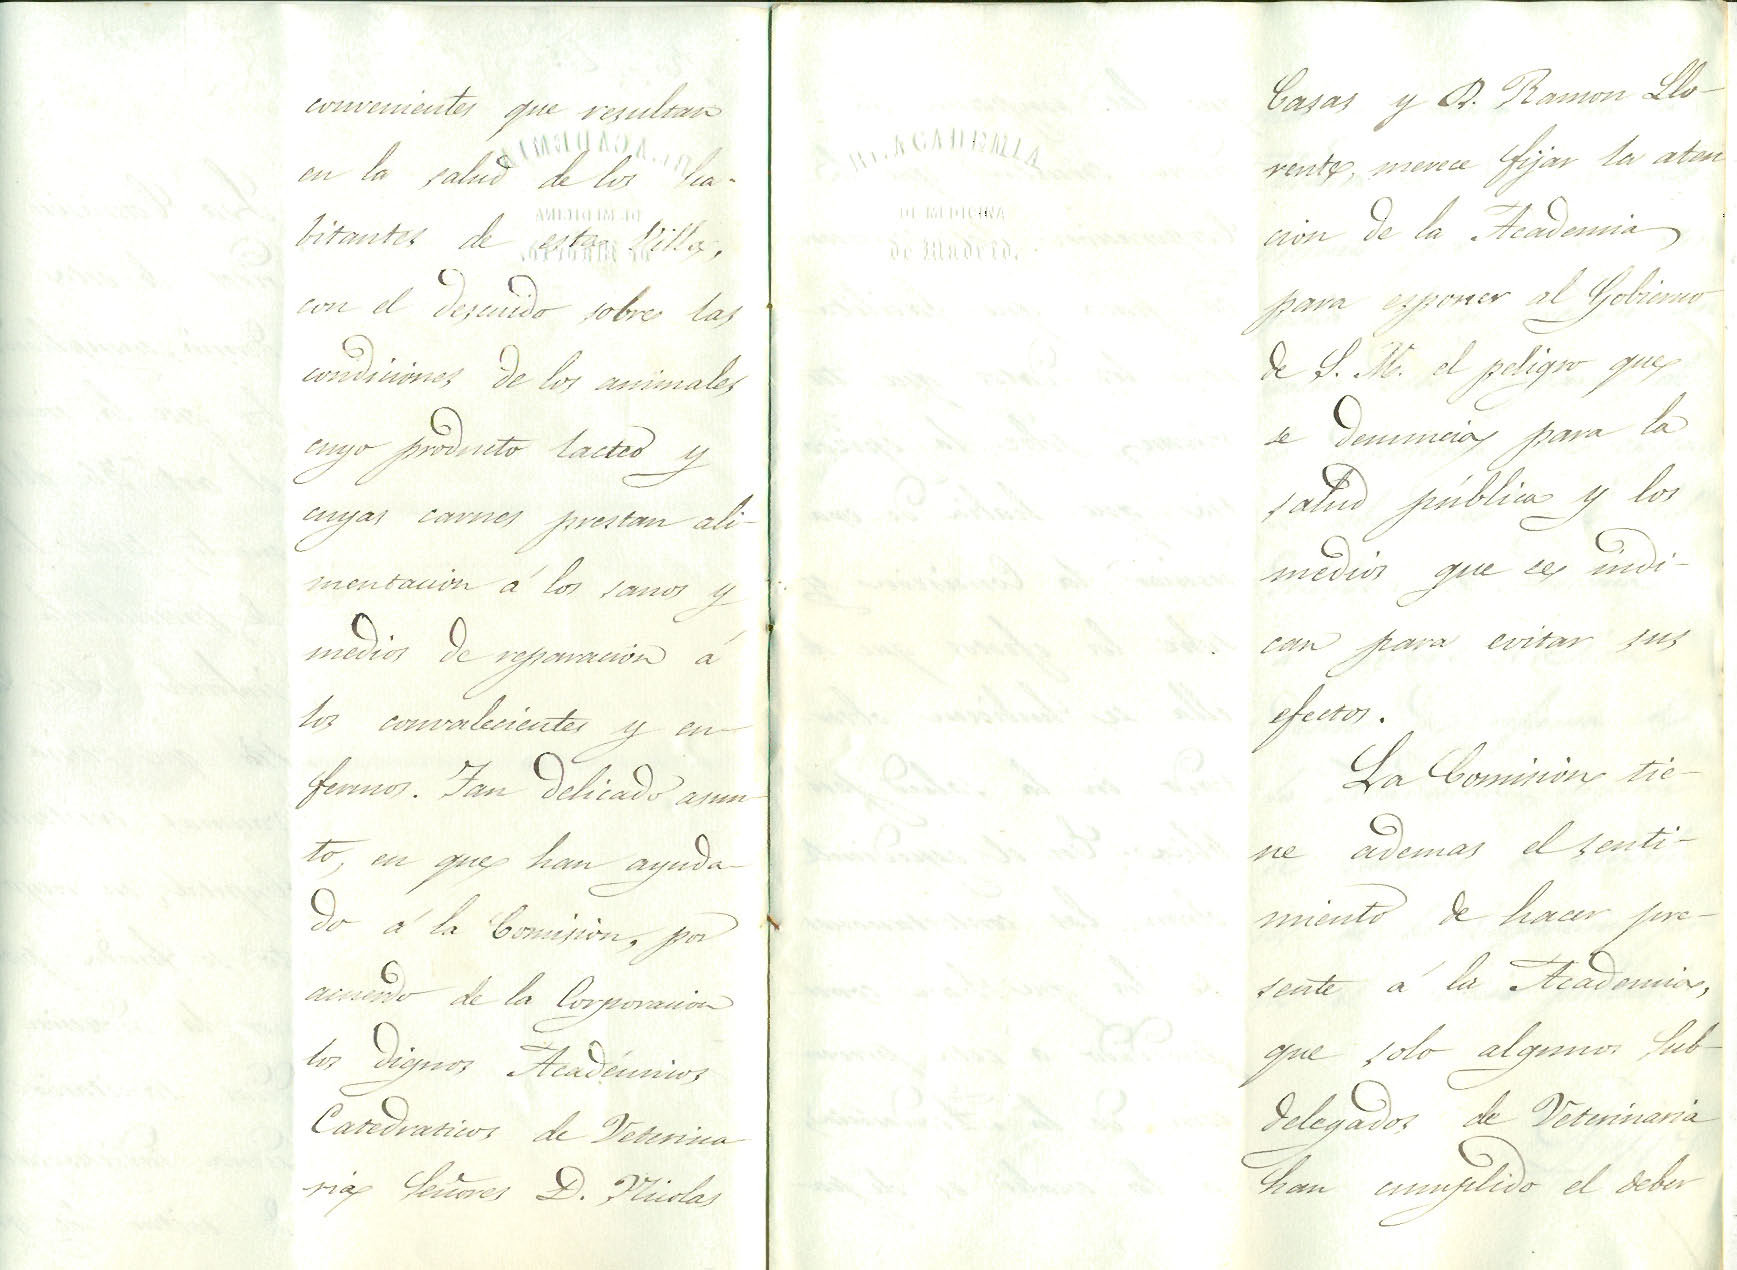 convenientes que resultan
en la salud de los ha-
bitantes de esta Villa,
con el descuido sobre las
condiciones de los animales
cuyo producto lacteo y
cuyas carnes prestan ali-
mentacion á los sanos y
medios de reparacion á
los convalecientes y en-
fermos. Tan delicado asun-
to, en que han ayuda-
do á la Comision, por
acuerdo de la Corporacion
los dignos Académicos
Catedraticos de Veterina-
ria Señores D. Nicolas
Rl. ACADEMIA
DE MEDICINA
DE MADRID.
Casas y D. Ramon Llo-
rente, merece fijar la aten
cion de la Academia
para esponer al Gobierno
de S. M. el peligro que
se denuncia para la
salud pública y los
medios que se indi-
can para evitar sus
efectos.
La Comision tie-
ne ademas el senti-
miento de hacer pre-
sente á la Academia,
que solo algunos Sub-
delegados de Veterinaria
han cumplido el deber